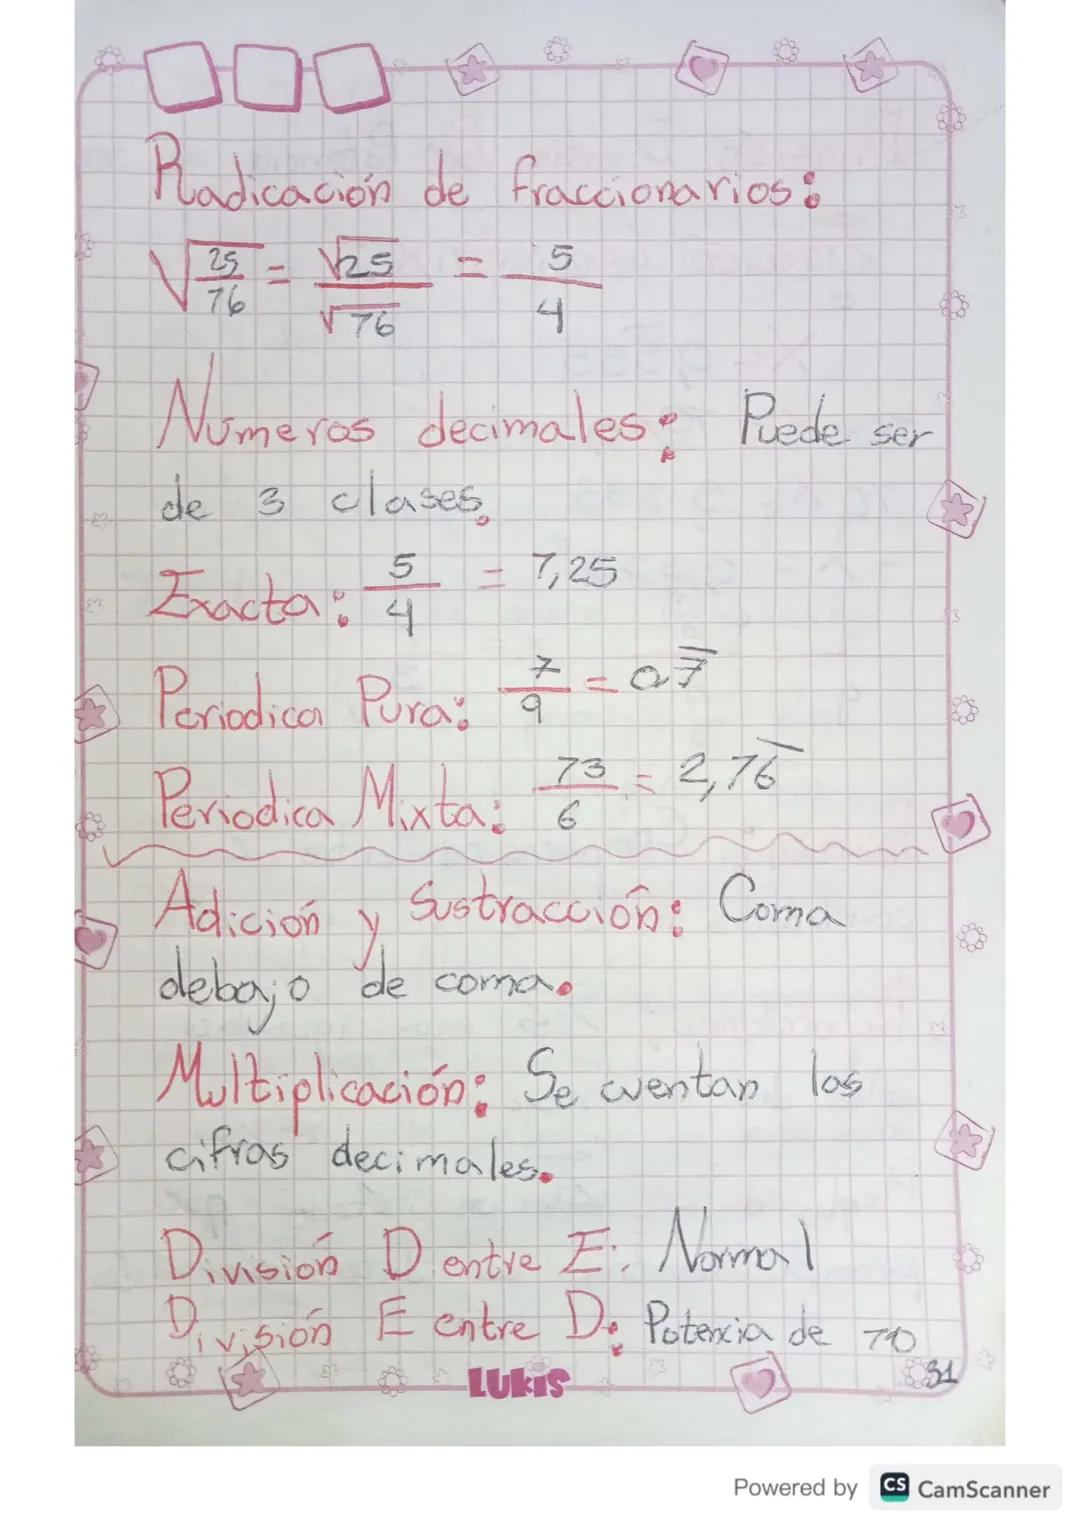 Radicación de fraccionarios:
√25/16 = √25/√16 = 5/4
Números decimales: Puede ser
de 3 clases.
Exacta: 5/4 = 1,25
Periodica Pura: 7/9 = 0,7̅
Periodica Mixta: 13/6 = 2,16̅
Adición y Sustracción: Coma
debajo de coma.
Multiplicación: Se cuentan las
cifras decimales.
División D entre E: Normal
División E entre D: Potencia de 10
LUKIS
31
Powered by CS CamScanner